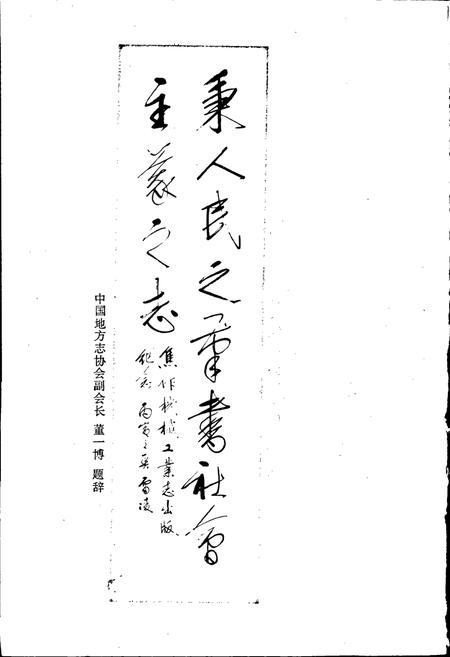 秉人民之笔书社会
主义之志
焦作机械工业志出版
纪念 丙寅之
中国地方志协会副会长 董一博 题辞